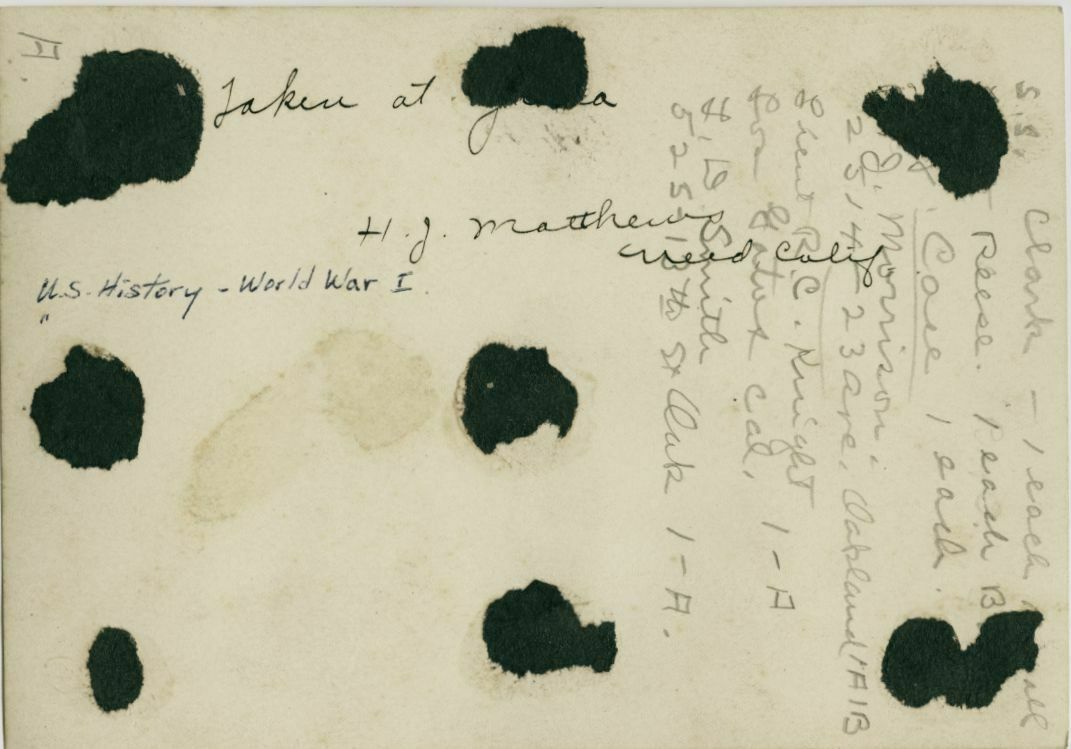 Taken at
H. J. Matthews
Weed Calif
U.S. History - World War I
"
S.S. Clark - 1 each
Reese. 1 each B
Case 1 each.
J. Morrison.
2514 - 23 ave. Oakland 1A1B
R.C. Knight
Los Gatos Cal, 1-A
H. G. Smith
525 - 18th St Oak 1-A.